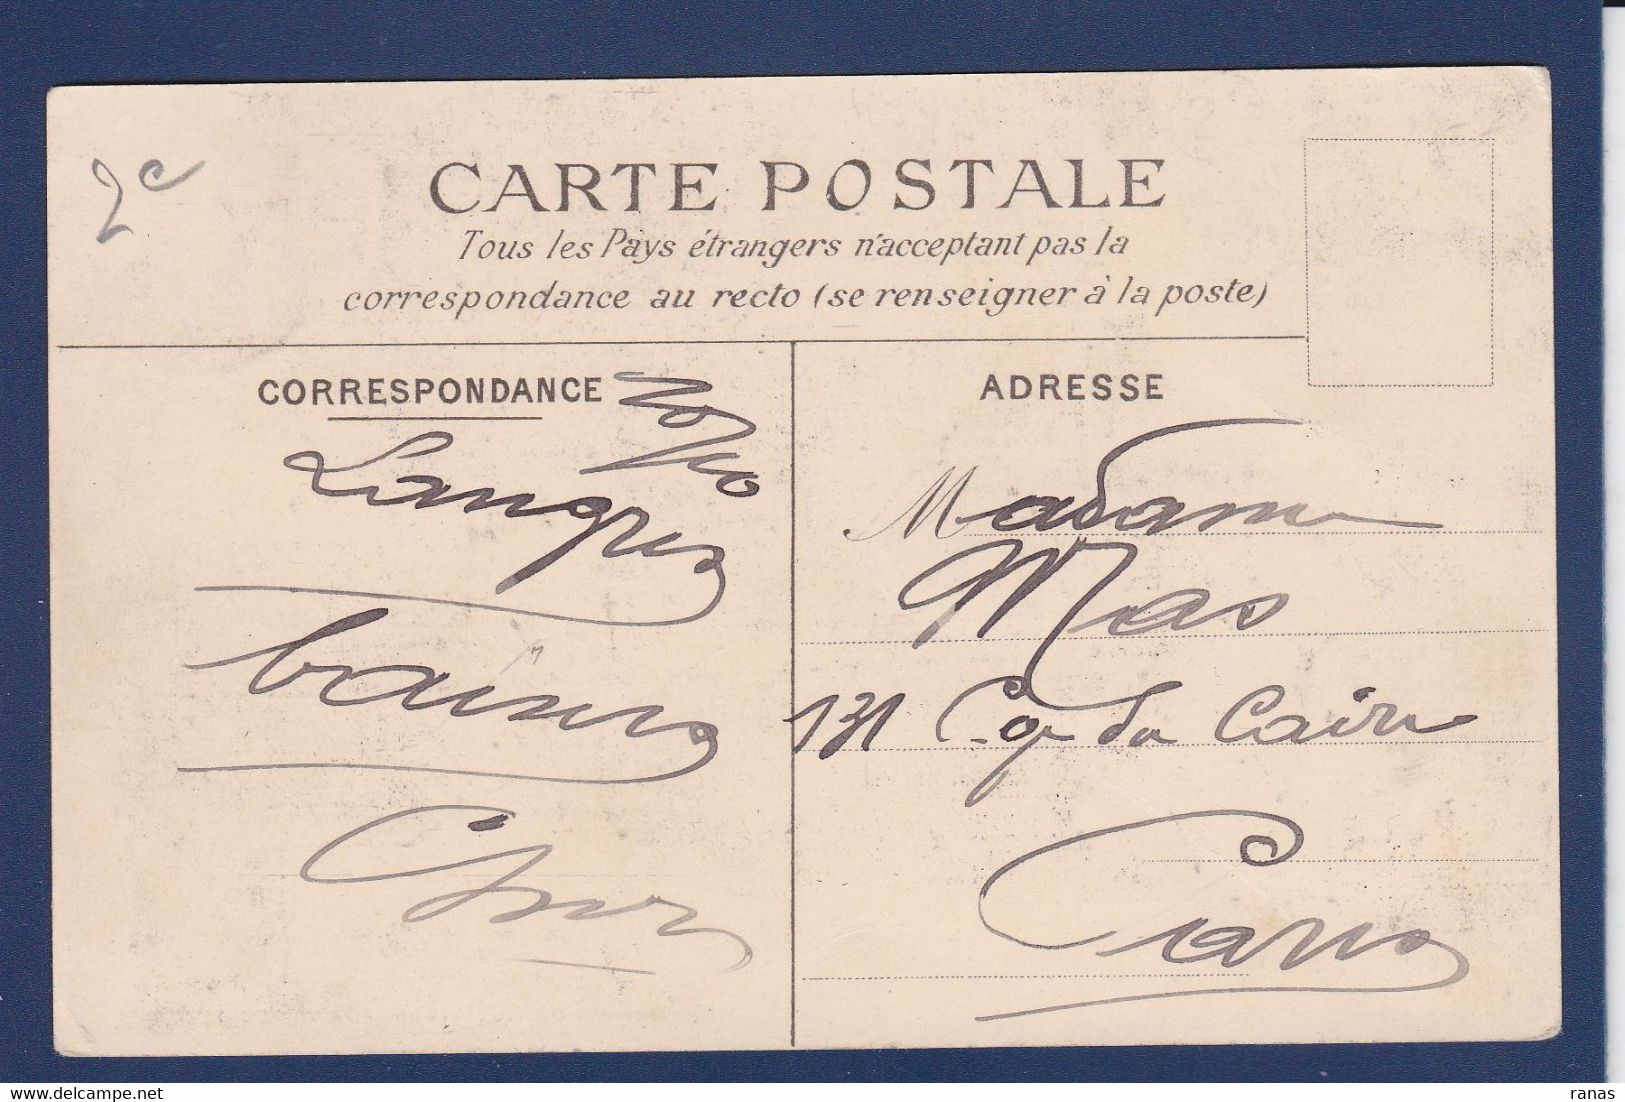 2c
CARTE POSTALE
Tous les Pays étrangers n'acceptant pas la
correspondance au recto (se renseigner à la poste)
CORRESPONDANCE
Langres
baisers
ADRESSE
Madame
Mas
131 du Caire
Paris
ranas